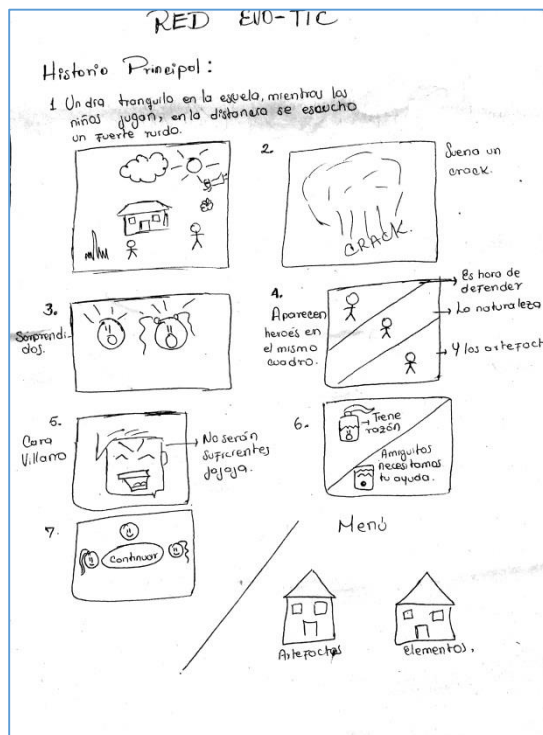 RED EVO-TIC
Historia Principal:
1 Un dia tranquilo en la escuela, mientras los
niños jugan, en la distancia se escucho
un fuerte ruido.
2.
Suena un
crack.
CRACK.
3.
Sorprendi
dos.
4.
Aparecen
heroes en
el mismo
cuadro.
Es hora de
defender
La naturaleza
Y los artefact
5.
Cara
Villano
No serán
suficientes
jajaja.
6.
Tiene
razón
Amiguitos
necesitamos
tu ayuda.
7.
Continuar
Menú
Artefactos
elementos.